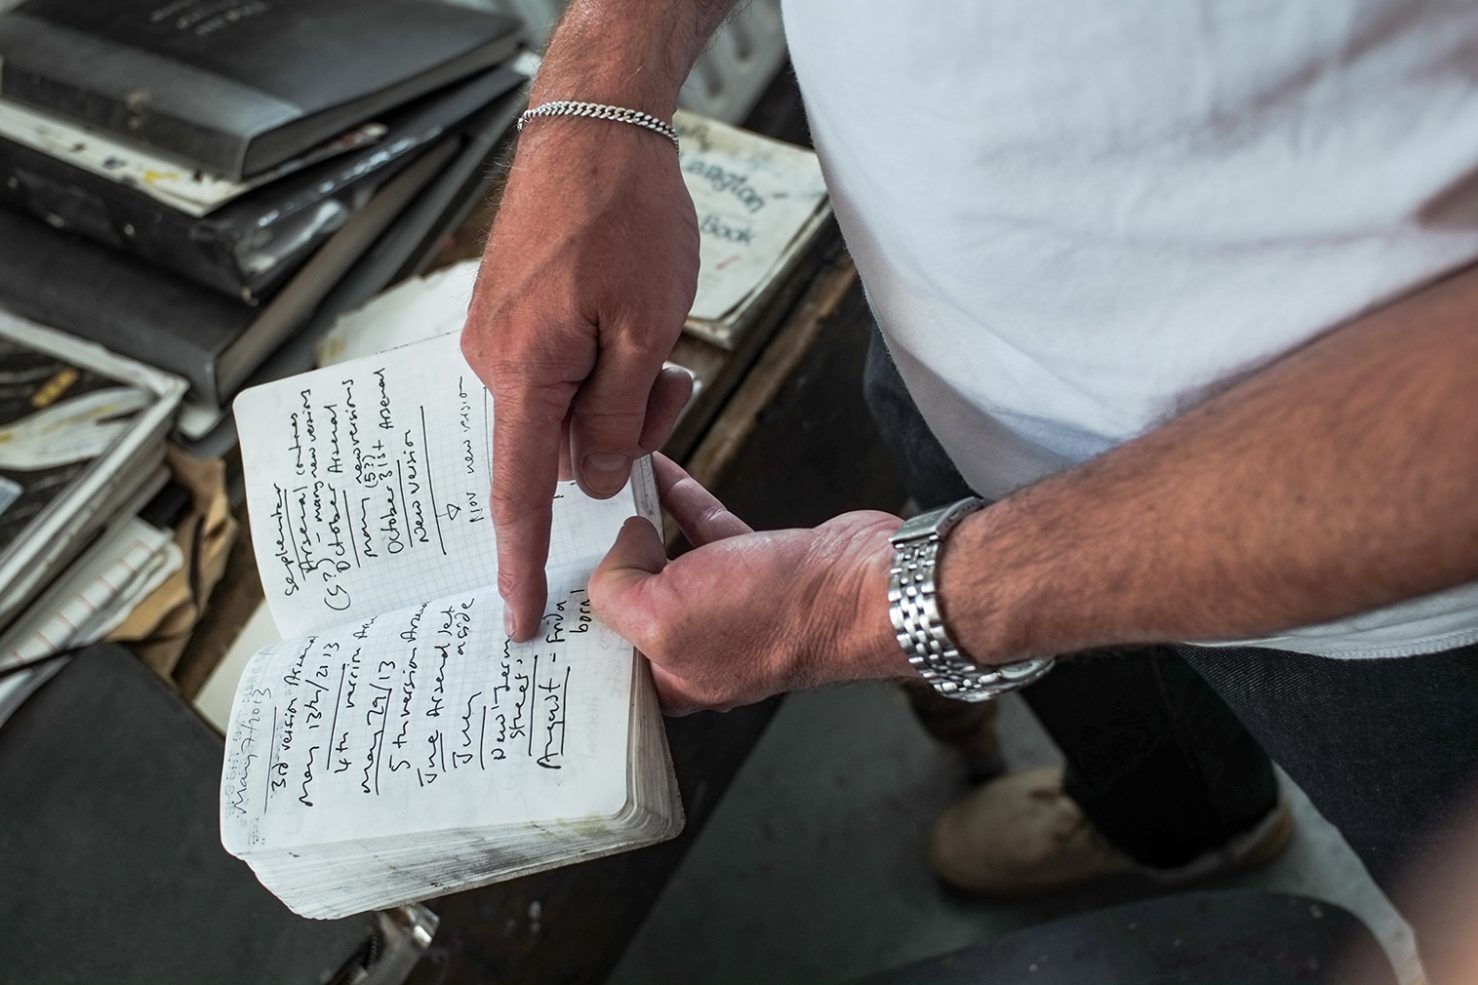 May 7/2013
3rd version Arsenal
May 13th/2013
4th version Ars
May 29/13
5th version Arsenal
June Arsenal let
aside
July
New
Streets,
August - Frida
born!
September
Arsenal continues
(5?) - many new versions
October Arsenal
many new versions
(5?)
October 31st Arsenal
New version
Nov new version
Book